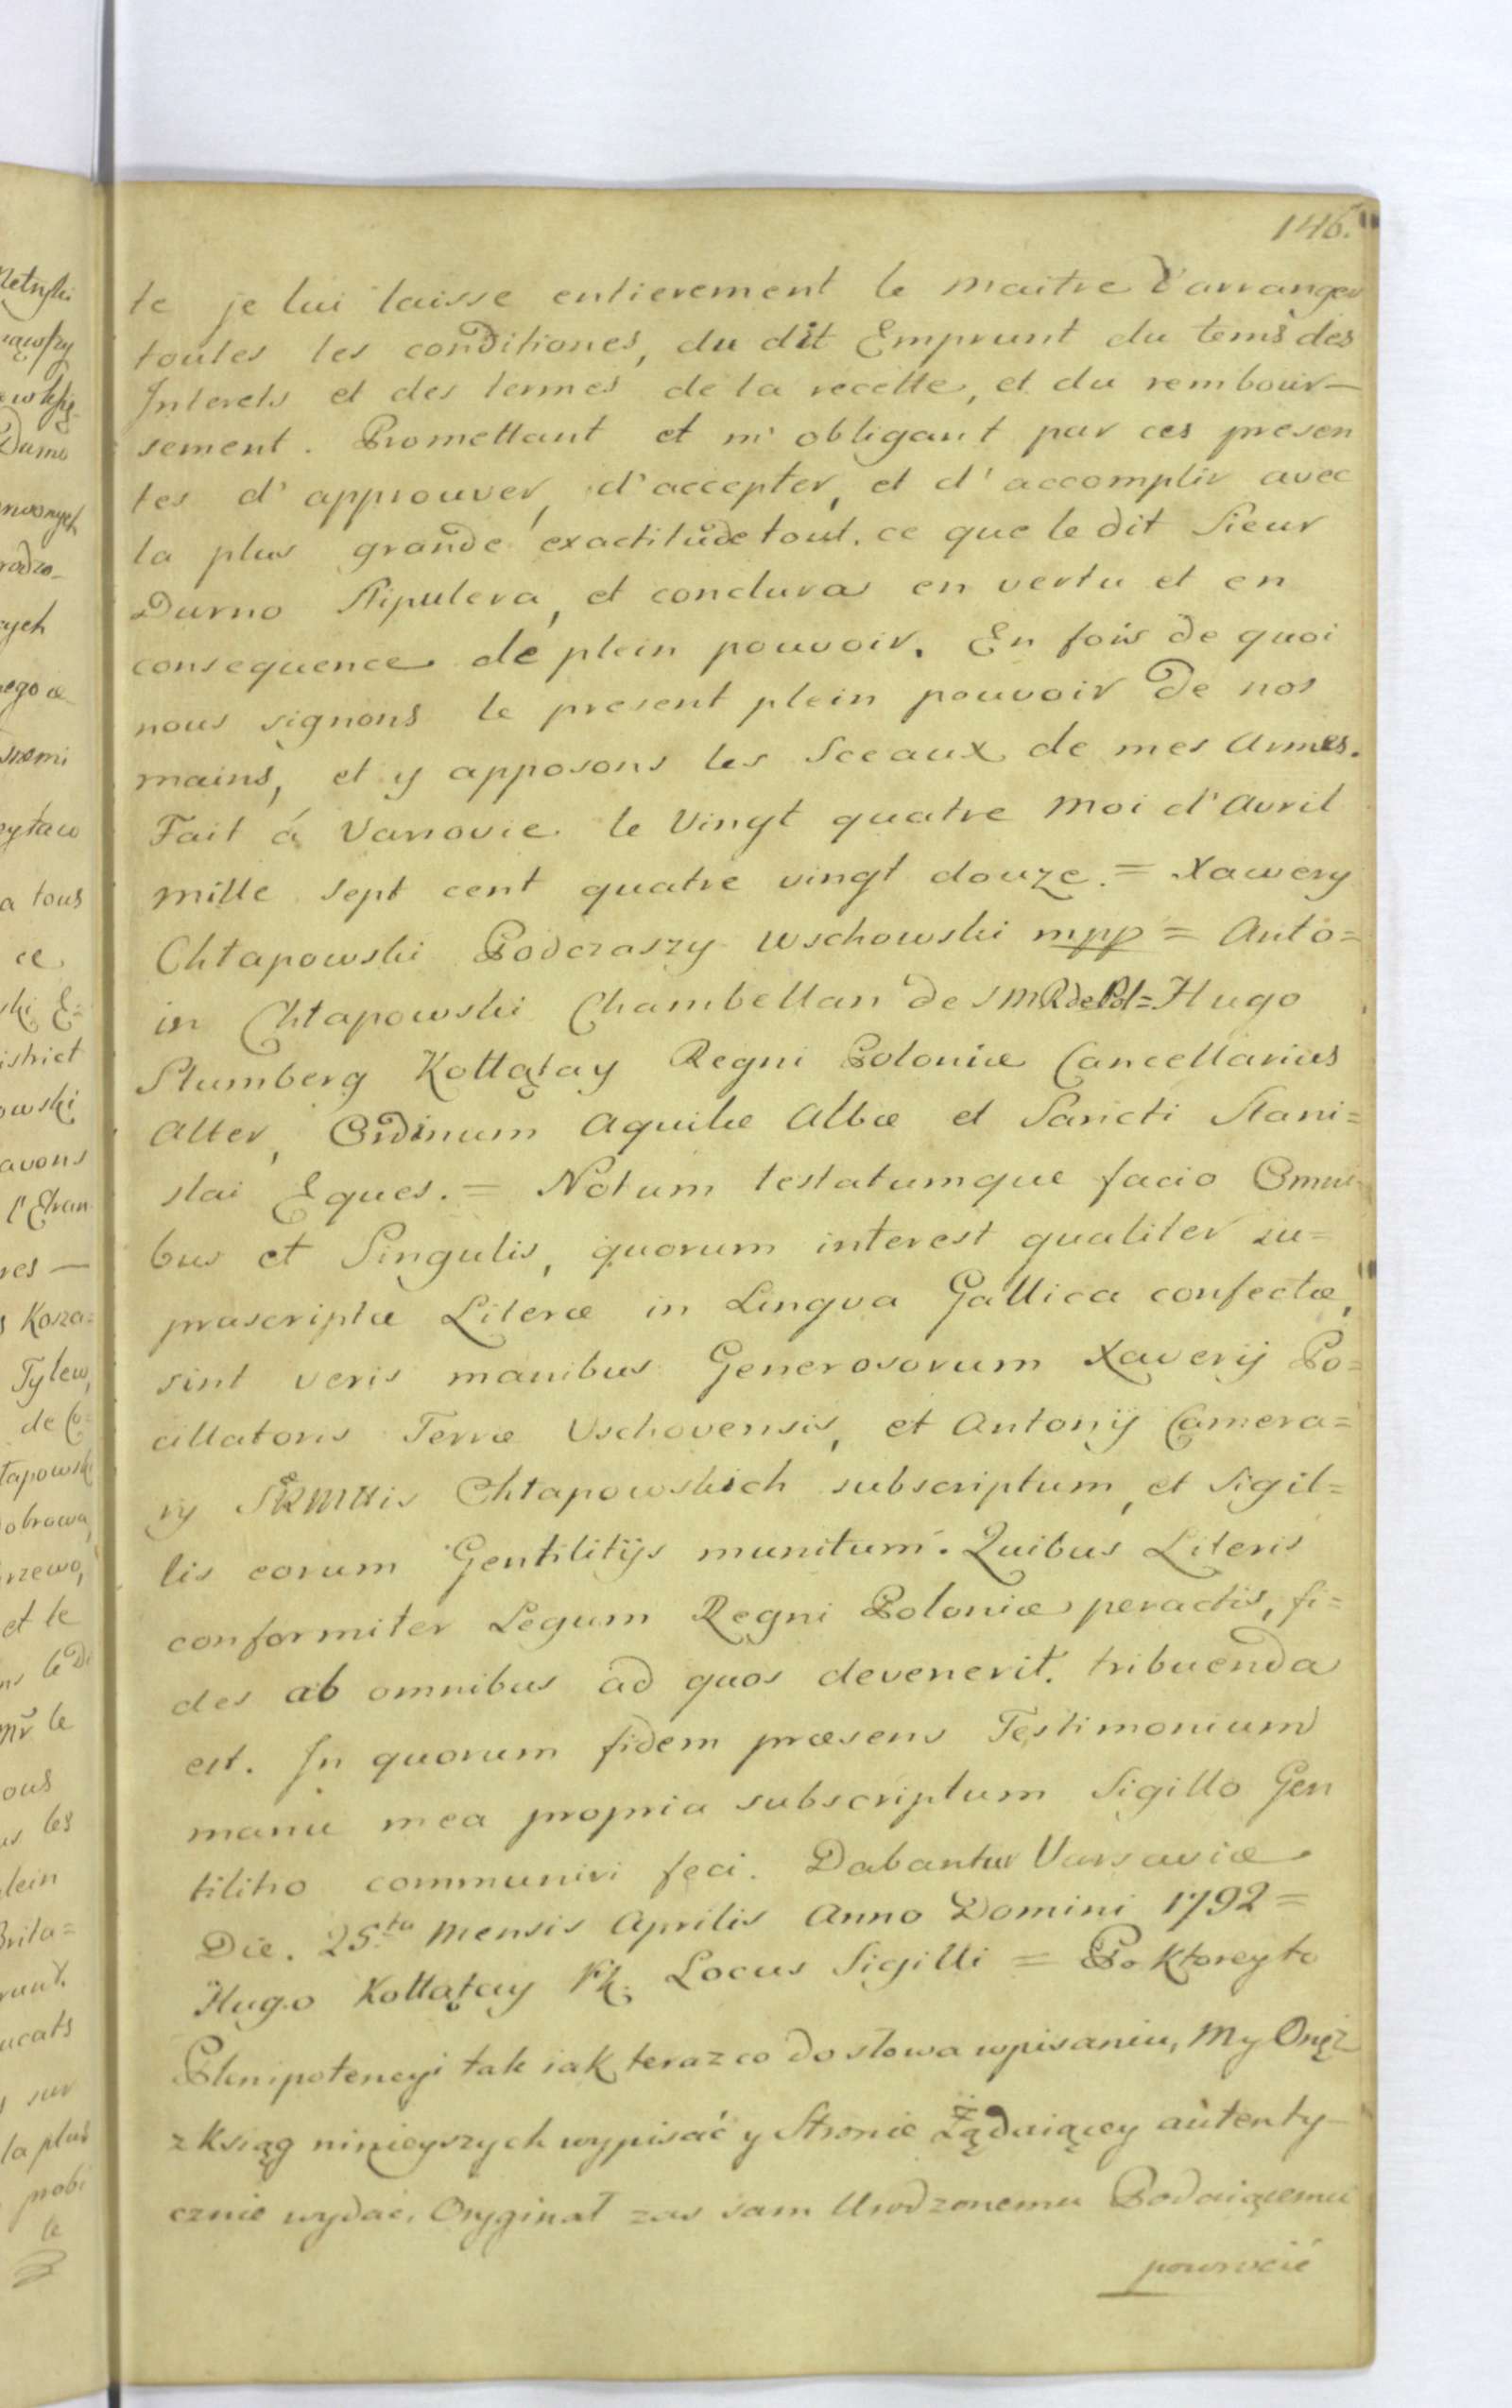 146.
te je lui laisse entierement le maitre d'arranger
toutes les conditiones, du dit Emprunt du tems des
Interets et des termes de la recette, et du rembour-
sement. Promettant et m'obligant par ces presen
tes d'approuver, d'accepter, et d'accomplir avec
la plus grande exactitude tout. ce que le dit Sieur
Durno Stipulera, et conclura en vertu et en
consequence de plein pouvoir. En fois de quoi
nous signons le present plein pouvoir de nos
mains, et y apposons les Sceaux de mes Armes.
Fait á Varsovie le Vingt quatre Moi d'Avril
mille sept cent quatre vingt douze. = Xawery
Chłapowski Podczaszy Wschowski mpp = Anto=
in Chłapowski Chambellan de S M R de Pol = Hugo
Stumberg Kołłątay Regni Poloniæ Cancellarius
Alter, Ordinum Aquilæ Albæ et Sancti Stani=
slai Eques. = Notum testatumque facio Omni
bus et Singulis, quorum interest qualiter su=
prascriptæ Literæ in Lingva Gallica confectæ,
sint veris manibus Generosorum Xaverij Po=
cillatoris Terræ Vschovensis, et Antonij Camera=
rij SRMttis Chłapowskich subscriptum, et Sigil=
lis eorum Gentilitijs munitum. Quibus Literis
conformiter Legum Regni Poloniæ peractis, fi=
des ab omnibus ad quos devenerit. tribuenda
est. In quorum fidem præsens Testimonium
manu mea propria subscriptum Sigillo Gen
tilitio communiri feci. Dabantur Varsaviæ
Die. 25.ta Mensis Aprilis Anno Domini 1792 =
Hugo Kołłątay Locus Sigilli = Po Ktoreyto
Plenipotencyi tak iak teraz co do słowa wpisaniu, My Onęż
z Ksiąg ninieyszych wypisać y Stronie Żądaiącey autenty-
cznie wydać, Oryginał zas sam Urodzonemu Podaiącemu
powrocić